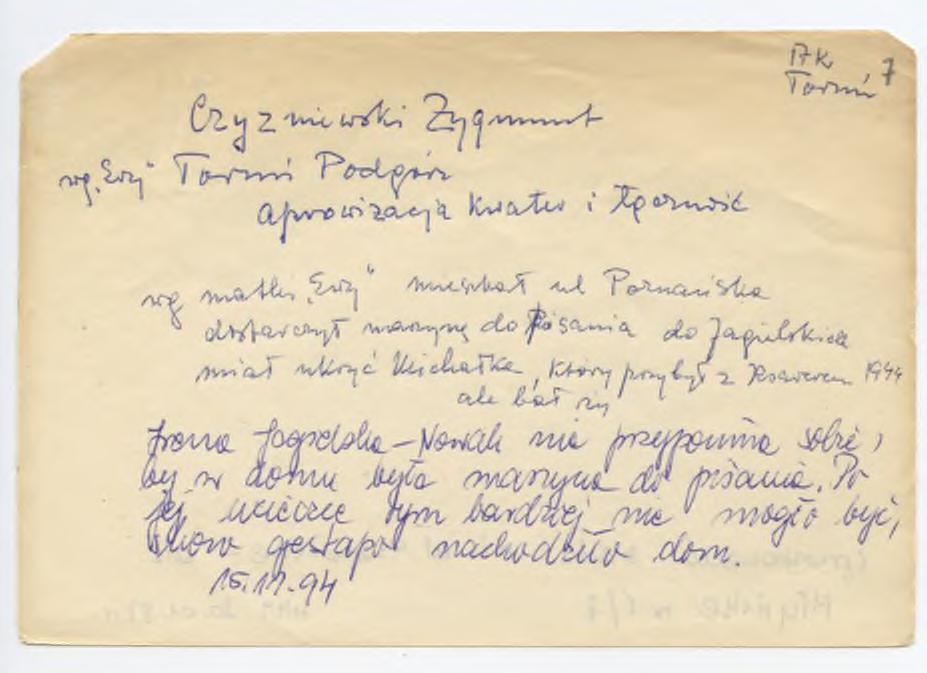 7
Toruń
Czyzniewski Zygmunt
wg „Ewy" Toruń Podgórz
aprowizacja kwater i łączność
wg matki „Ewy" mieszkał ul Poznańska
dostarczył maszynę do pisania do Jagielskich
miał ukryć Michałka, który przybył z 1944
ale bał się
Irena Jagielska-Nowak nie przypomina sobie,
by w domu była maszyna do pisania. Po
jej ucieczce tym bardziej nie mogło być,
skoro gestapo nachodziło dom.
15.11.94